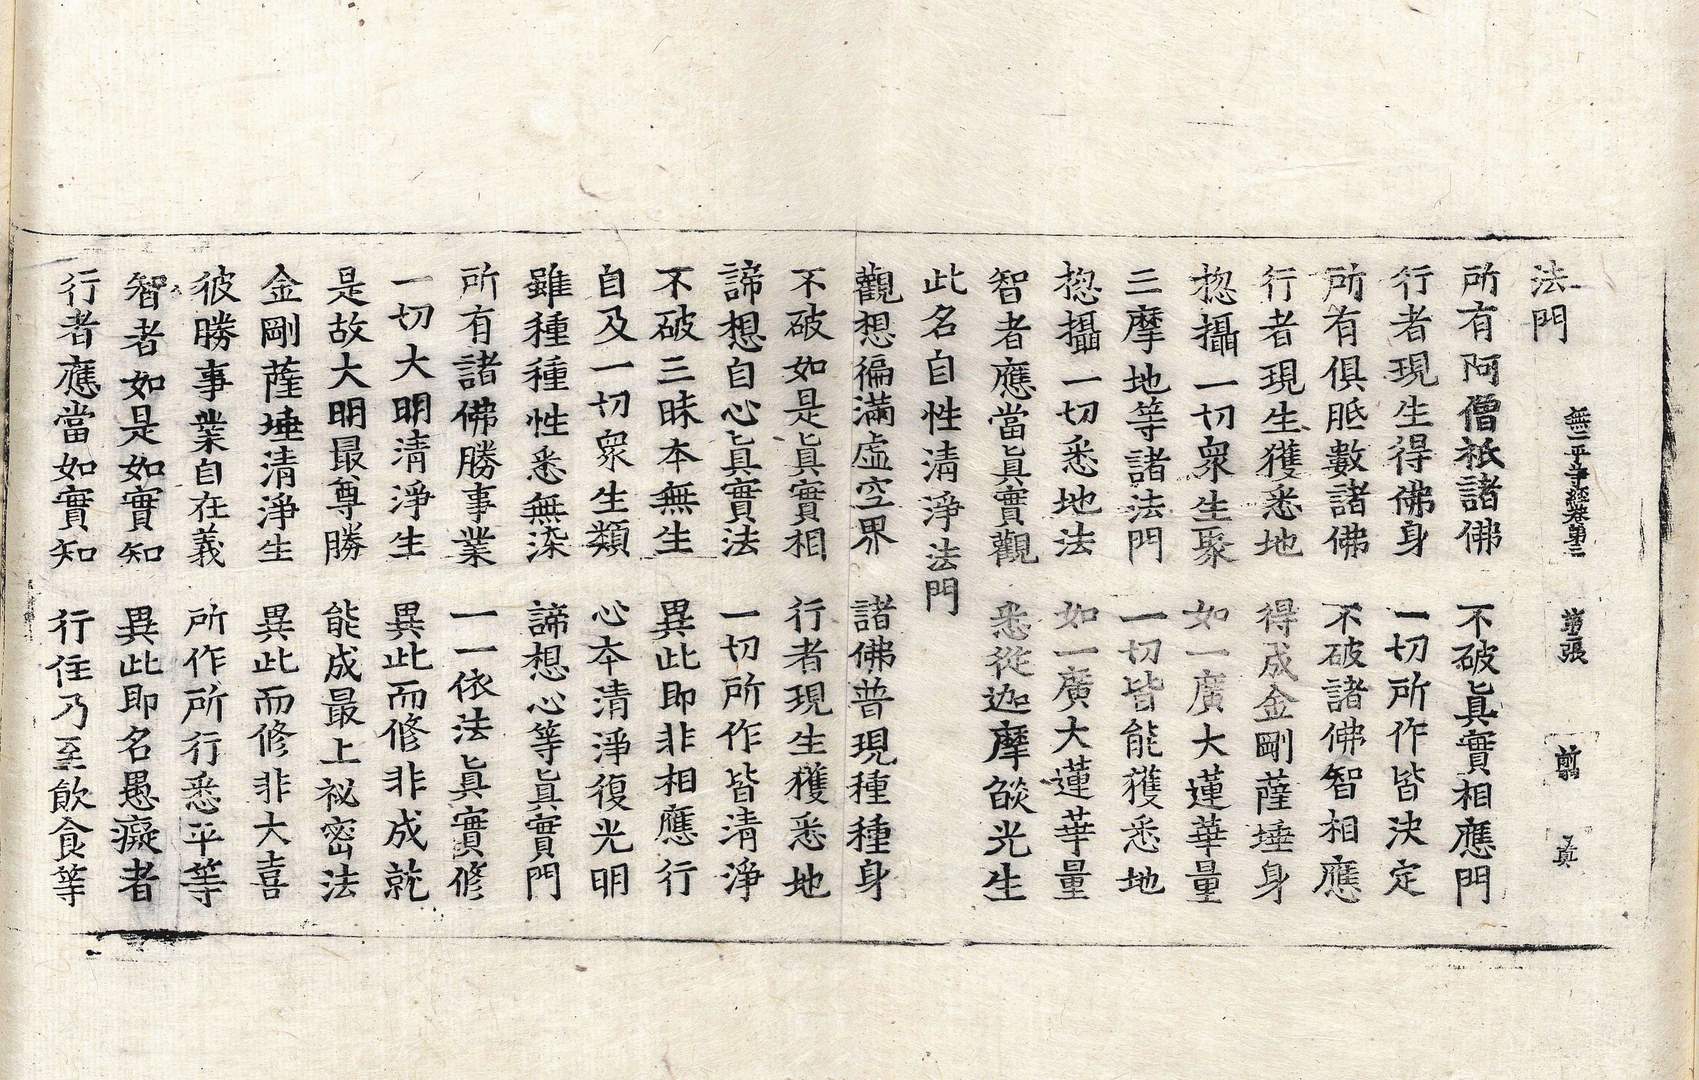 法門
無二平等經卷第三 第二張 翦 真
所有阿僧祇諸佛 不破眞實相應門
行者現生得佛身 一切所作皆決定
所有俱胝數諸佛 不破諸佛智相應
行者現生獲悉地 得成金剛薩埵身
揔攝一切衆生聚 如一廣大蓮華量
三摩地等諸法門 一切皆能獲悉地
揔攝一切悉地法 如一廣大蓮華量
智者應當眞實觀 悉從迦摩燄光生
此名自性清淨法門
觀想徧滿虛空界 諸佛普現種種身
不破如是眞實相 行者現生獲悉地
諦想自心眞實法 一切所作皆清淨
不破三昧本無生 異此即非相應行
自及一切衆生類 心本清淨復光明
雖種種性悉無染 諦想心等眞實門
所有諸佛勝事業 一一依法眞實修
一切大明清淨生 異此而修非成就
是故大明最尊勝 能成最上祕密法
金剛薩埵清淨生 異此而修非大喜
彼勝事業自在義 所作所行悉平等
智者如是如實知 異此即名愚癡者
行者應當如實知 行住乃至飮食等